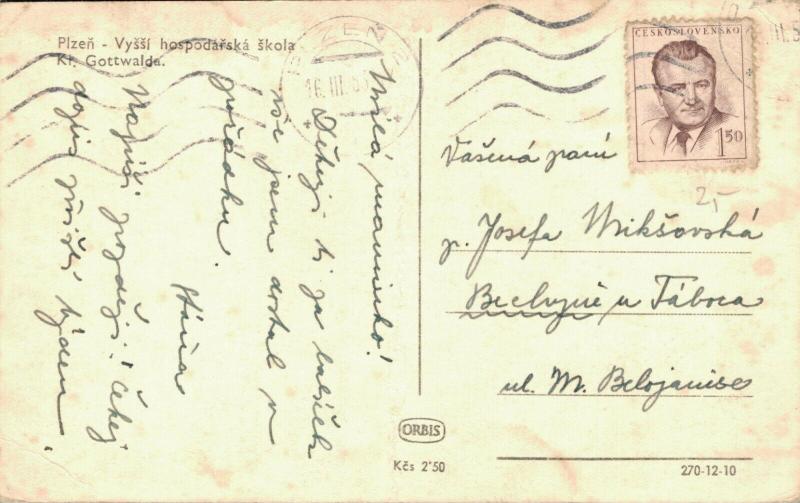 Plzeň - Vyšší hospodářská škola
Kl. Gottwalda.
PLZEŇ 2
16. III. 5
ČESKOSLOVENSKO
1.50
III. 5
2,-
Milá maminko!
Děkuji ti za balíček
vše jsem dostal v
pořádku.
Stáňa
Napíši později! Čekej
dopis příští týden.
Vážená paní
p. Josefa Mikšovská
Bechyně u Tábora
ul. M. Belojanise
ORBIS
Kčs 2'50
270-12-10